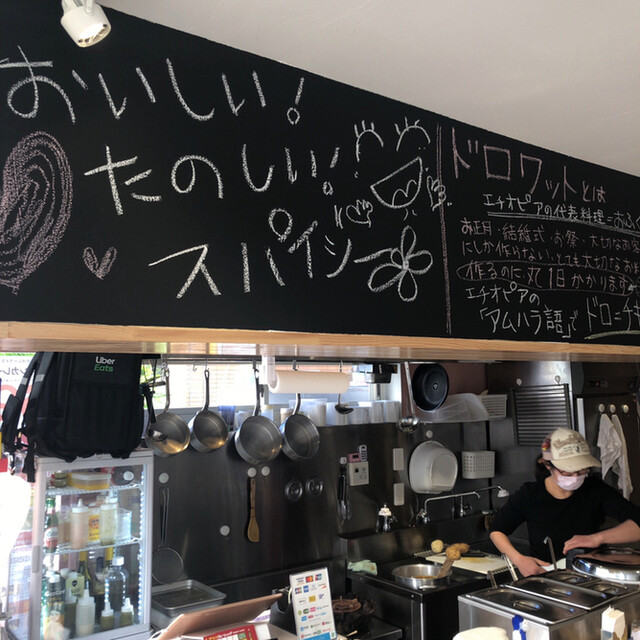 おいしい!
たのしい!
スパイシー
ドロワットとは
エチオピアの代表料理
お正月・結婚式・お祭・大切な
にしか作らない、とても大切なお
作るのに丸1日かかります
エチオピアの
「アムハラ語」で ドロ=チキ
Uber
Eats